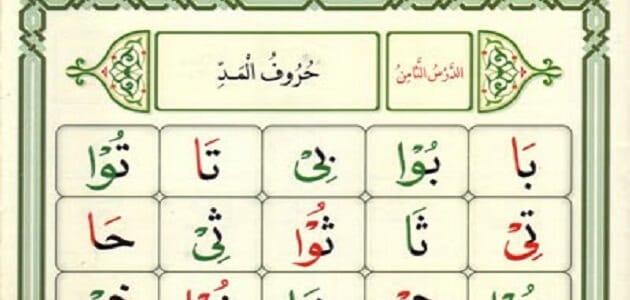 الدَّرْسُ الثَّامِنُ حُرُوفُ الْمَدِّ
بَا بُوْا بِىْ تَا تُوْا
تِىْ ثَا ثُوْا ثِىْ حَا